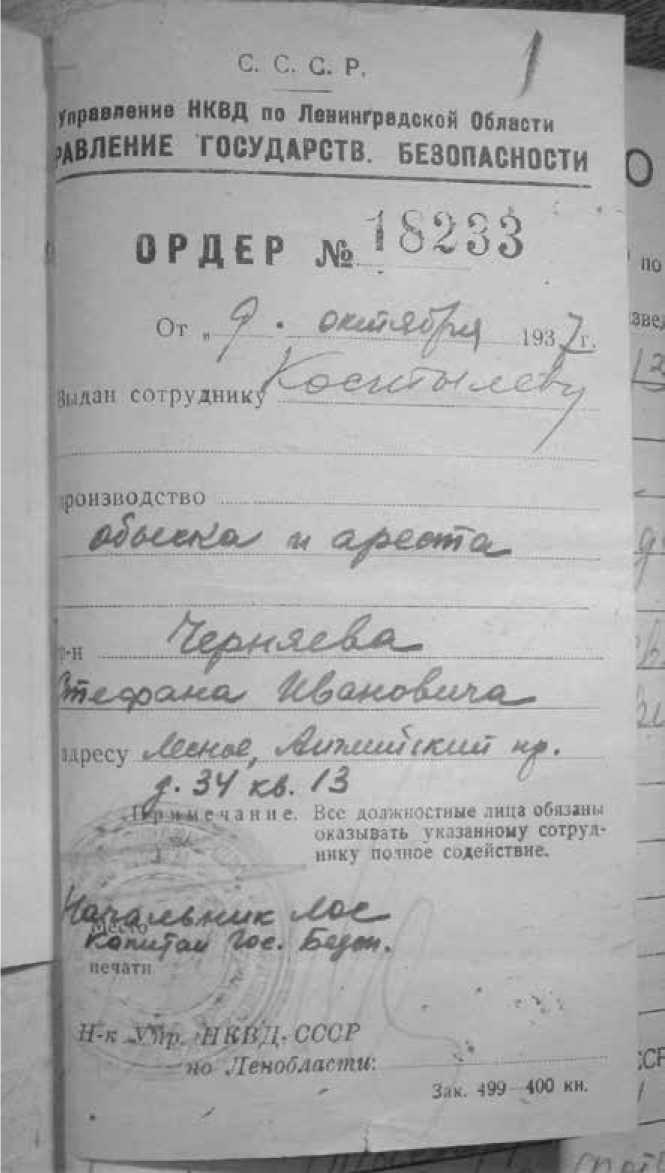 1
С. С. С. Р.
Управление НКВД по Ленинградской Области
РАВЛЕНИЕ ГОСУДАРСТВ. БЕЗОПАСНОСТИ
ОРДЕР № 18233
От „ 9 . октября 1937 г.
Выдан сотруднику Костылеву
производство
обыска и ареста
р-н Черняева
Стефана Ивановича
адресу Лесное, Английский пр.
д. 34 кв. 13
Примечание. Все должностные лица обязаны
оказывать указанному сотруд-
нику полное содействие.
Начальник
Место
Капитан Гос. Безоп.
печати
Н-к Упр. НКВД СССР
по Ленобласти:
Зак. 499—400 кн.